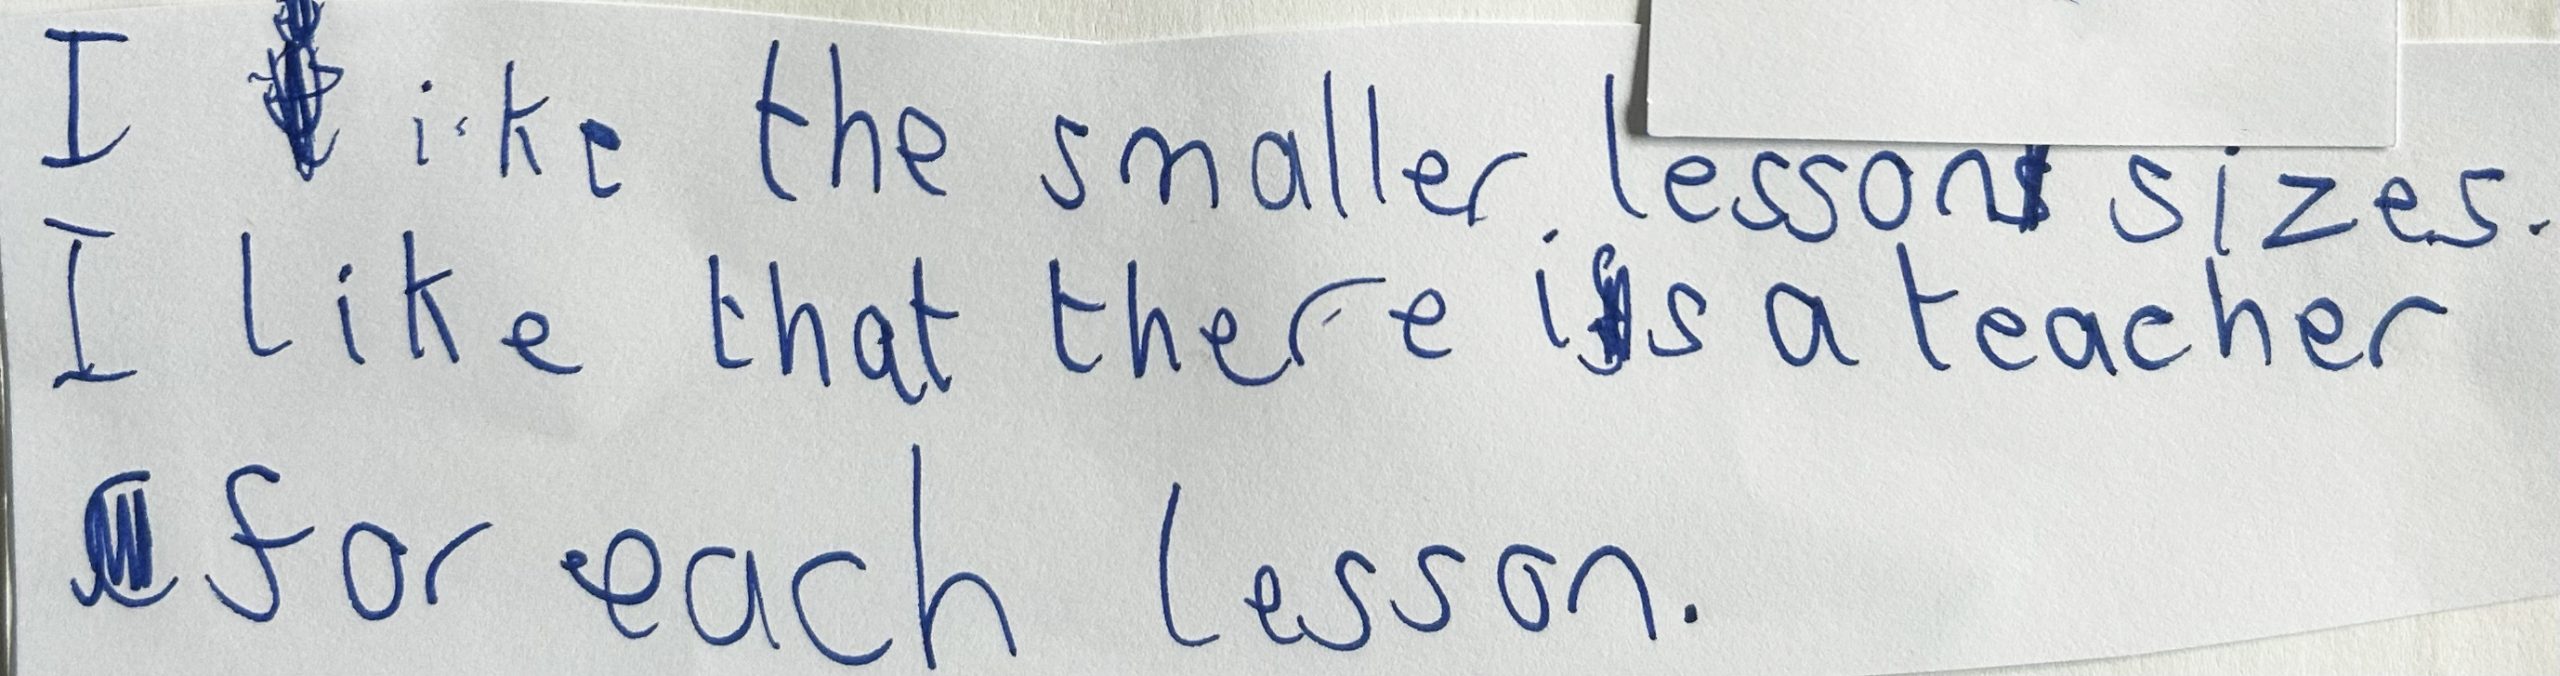 I like the smaller lesson sizes.
I like that there is a teacher
for each lesson.